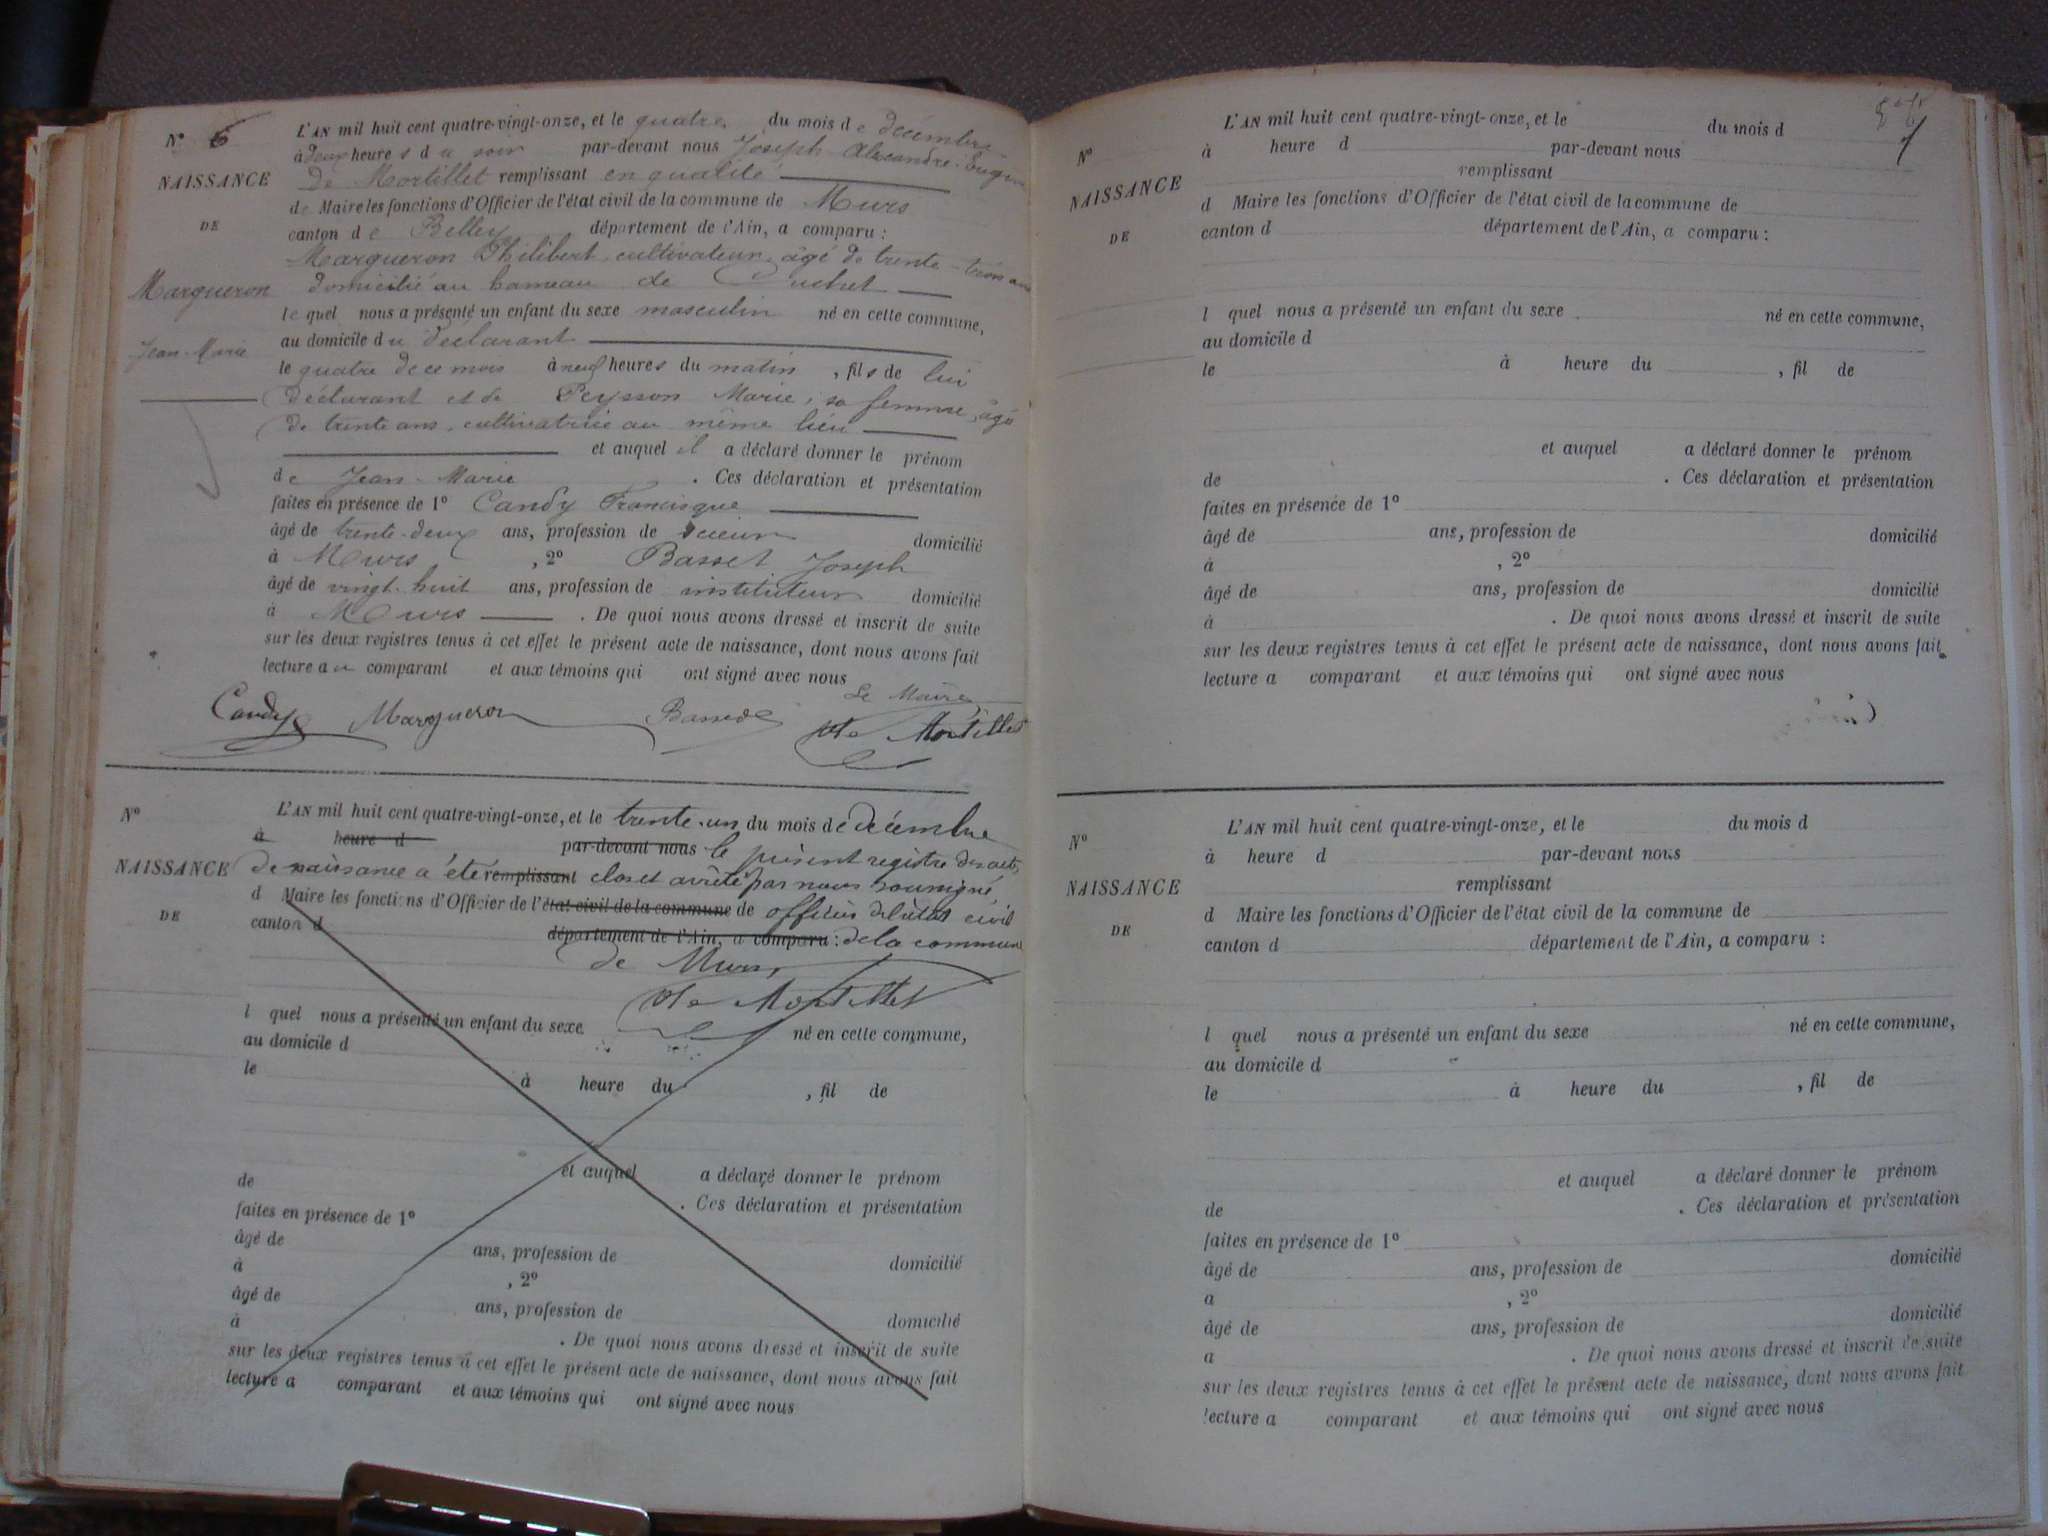 N° 6
NAISSANCE
DE
Margueron
Jean-Marie
L'AN mil huit cent quatre-vingt-onze, et le quatre du mois de décembre
à deux heures du soir par-devant nous Joseph Alexandre Eugène
De Mortillet remplissant en qualité
de Maire les fonctions d'Officier de l'état civil de la commune de Murs
canton de Belley département de l'Ain, a comparu :
Margueron Philibert, cultivateur, âgé de trente-trois ans
domicilié au hameau de
lequel nous a présenté un enfant du sexe masculin né en cette commune,
au domicile du déclarant
le quatre de ce mois à neuf heures du matin, fils de lui
déclarant et de Peysson Marie, sa femme, âgé
de trente ans, cultivatrice au même lieu
et auquel il a déclaré donner le prénom
de Jean-Marie . Ces déclaration et présentation
faites en présence de 1° Candy Francisque
âgé de trente-deux ans, profession de domicilié
à Murs , 2° Basset Joseph
âgé de vingt-huit ans, profession de instituteur domicilié
à Murs . De quoi nous avons dressé et inscrit de suite
sur les deux registres tenus à cet effet le présent acte de naissance, dont nous avons fait
lecture au comparant et aux témoins qui ont signé avec nous
Le Maire
Candy Margueron Basset de Mortillet
N°
NAISSANCE
DE
L'AN mil huit cent quatre-vingt-onze, et le trente-un du mois de décembre
à heure d par-devant nous le présent registre des actes
de naissance a été remplissant clos et arrêté par nous soussigné
d Maire les fonctions d'Officier de l'état civil de la commune de officier de l'état civil
canton d département de l'Ain, a comparu : de la commune
de Murs,
de Mortillet
l quel nous a présenté un enfant du sexe né en cette commune,
au domicile d
le à heure du , fil de
et auquel a déclaré donner le prénom
de . Ces déclaration et présentation
faites en présence de 1°
âgé de ans, profession de domicilié
à , 2°
âgé de ans, profession de domicilié
à . De quoi nous avons dressé et inscrit de suite
sur les deux registres tenus à cet effet le présent acte de naissance, dont nous avons fait
lecture a comparant et aux témoins qui ont signé avec nous
7
N°
NAISSANCE
DE
L'AN mil huit cent quatre-vingt-onze, et le du mois d
à heure d par-devant nous
remplissant
d Maire les fonctions d'Officier de l'état civil de la commune de
canton d département de l'Ain, a comparu :
l quel nous a présenté un enfant du sexe né en cette commune,
au domicile d
le à heure du , fil de
et auquel a déclaré donner le prénom
de . Ces déclaration et présentation
faites en présence de 1°
âgé de ans, profession de domicilié
à , 2°
âgé de ans, profession de domicilié
à . De quoi nous avons dressé et inscrit de suite
sur les deux registres tenus à cet effet le présent acte de naissance, dont nous avons fait
lecture a comparant et aux témoins qui ont signé avec nous
N°
NAISSANCE
DE
L'AN mil huit cent quatre-vingt-onze, et le du mois d
à heure d par-devant nous
remplissant
d Maire les fonctions d'Officier de l'état civil de la commune de
canton d département de l'Ain, a comparu :
l quel nous a présenté un enfant du sexe né en cette commune,
au domicile d
le à heure du , fil de
et auquel a déclaré donner le prénom
de . Ces déclaration et présentation
faites en présence de 1°
âgé de ans, profession de domicilié
a , 2°
âgé de ans, profession de domicilié
a . De quoi nous avons dressé et inscrit de suite
sur les deux registres tenus à cet effet le présent acte de naissance, dont nous avons fait
lecture a comparant et aux témoins qui ont signé avec nous